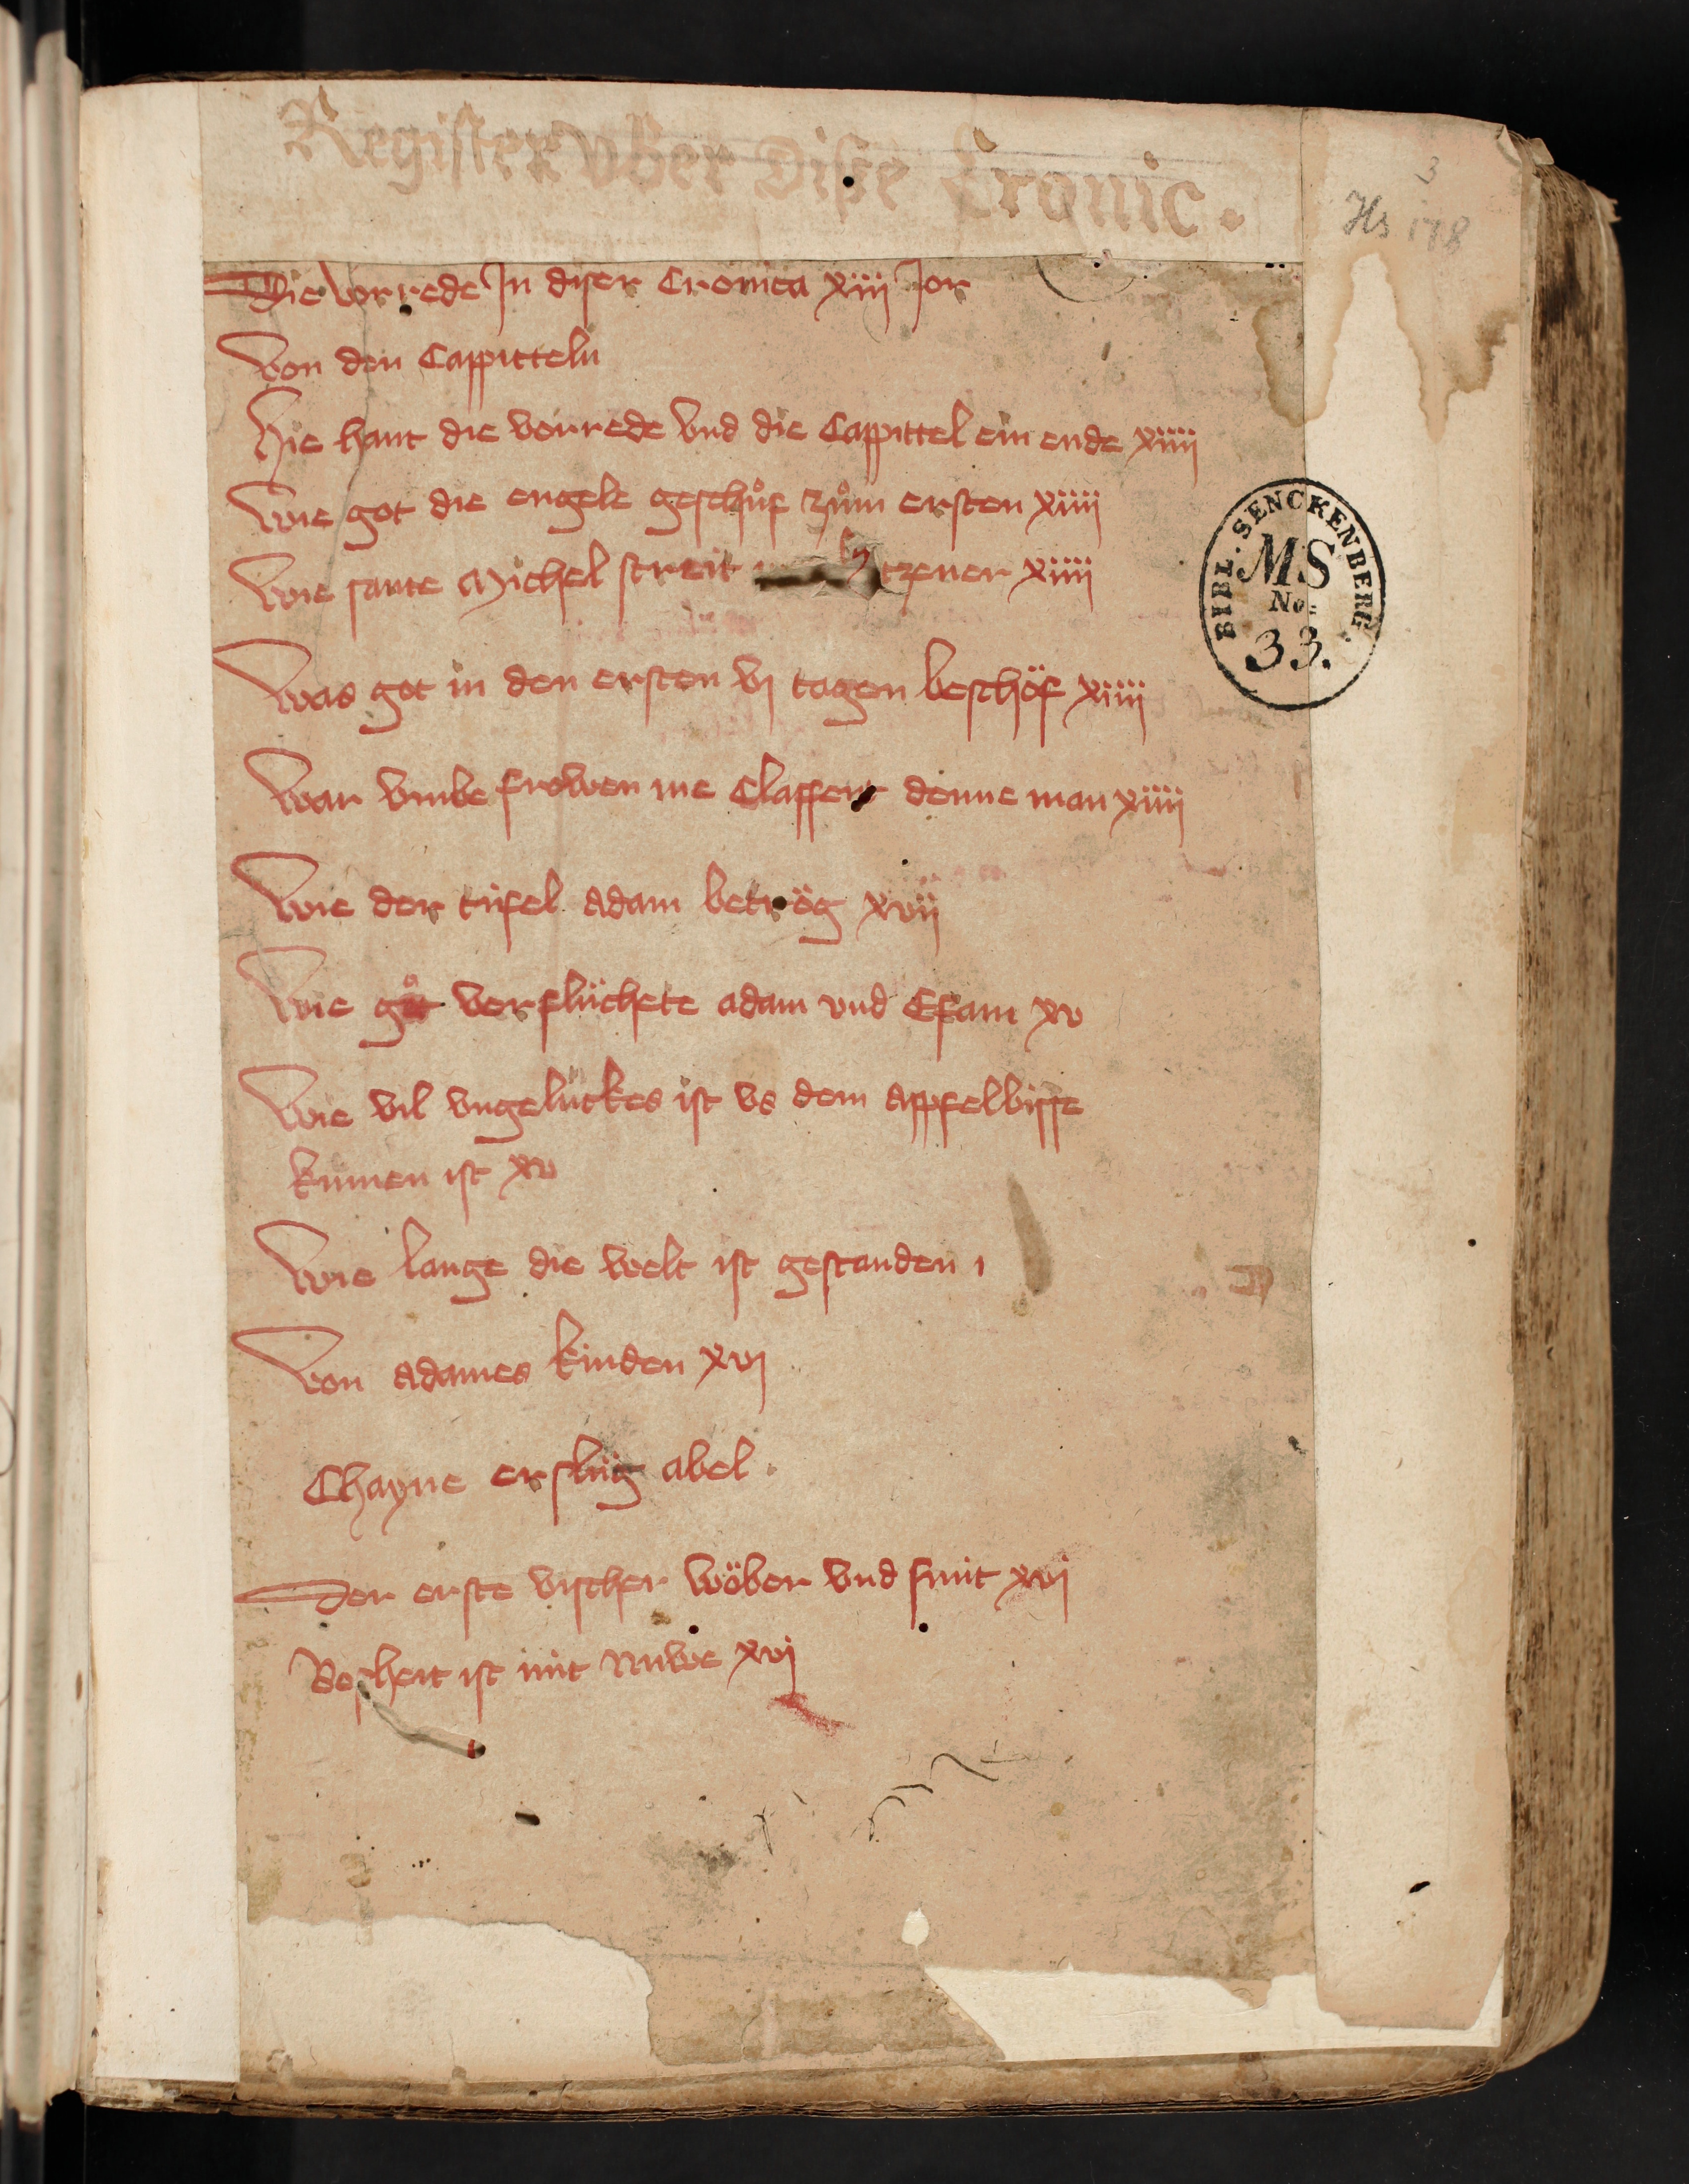 Register vber diße Cronic.
3
Hs 178
Die vorrede Jn diser Cronica xiiij Jor
Von den Cappitteln
Hie hant die vorrede vnd die Cappittel ein ende xiiij
Wie got die engele geschůf zům ersten xiiij
Wie sante Michel streit tzener xiiij
Was got in den ersten vj tagen beschöf xiiij
War vmbe frowen me Claffent denne man xiiij
Wie der tüfel Adam betrög xvij
Wie got verflüchete adam vnd Efam xv
Wie vil vngelückes ist vs dem Appfelbisse
kumen ist xv
Wie lange die welt ist gestanden
Von Adames kinden xvj
Chayne erslüg abel.
Der erste vischer wöber vnd smit xvj
Bosheit ist nüt Nuwe xvj
BIBL. SENCKENBERG.
MS
No:
33.